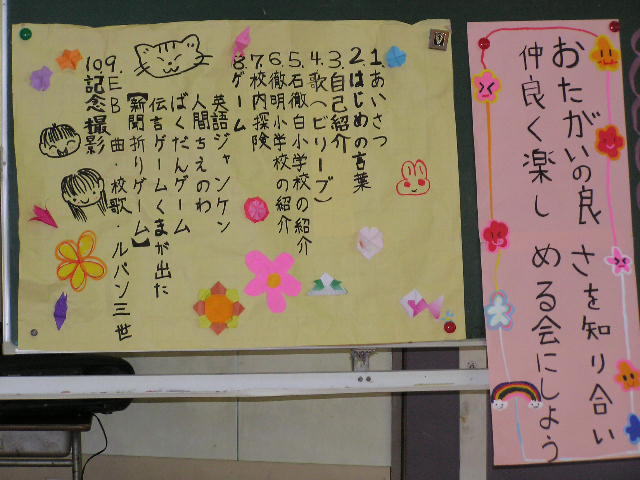 おたがいの良さを知り合い
仲良く楽しめる会にしよう
1.あいさつ
2.はじめの言葉
3.自己紹介
4.歌(ビリーブ)
5.石徹白小学校の紹介
6.徹明小学校の紹介
7.校内探険
8.ゲーム
英語ジャンケン
人間ちえのわ
ばくだんゲーム
伝言ゲームくまが出た
【新聞折りゲーム】
9.EB 曲・校歌・ルパン三世
10.記念撮影